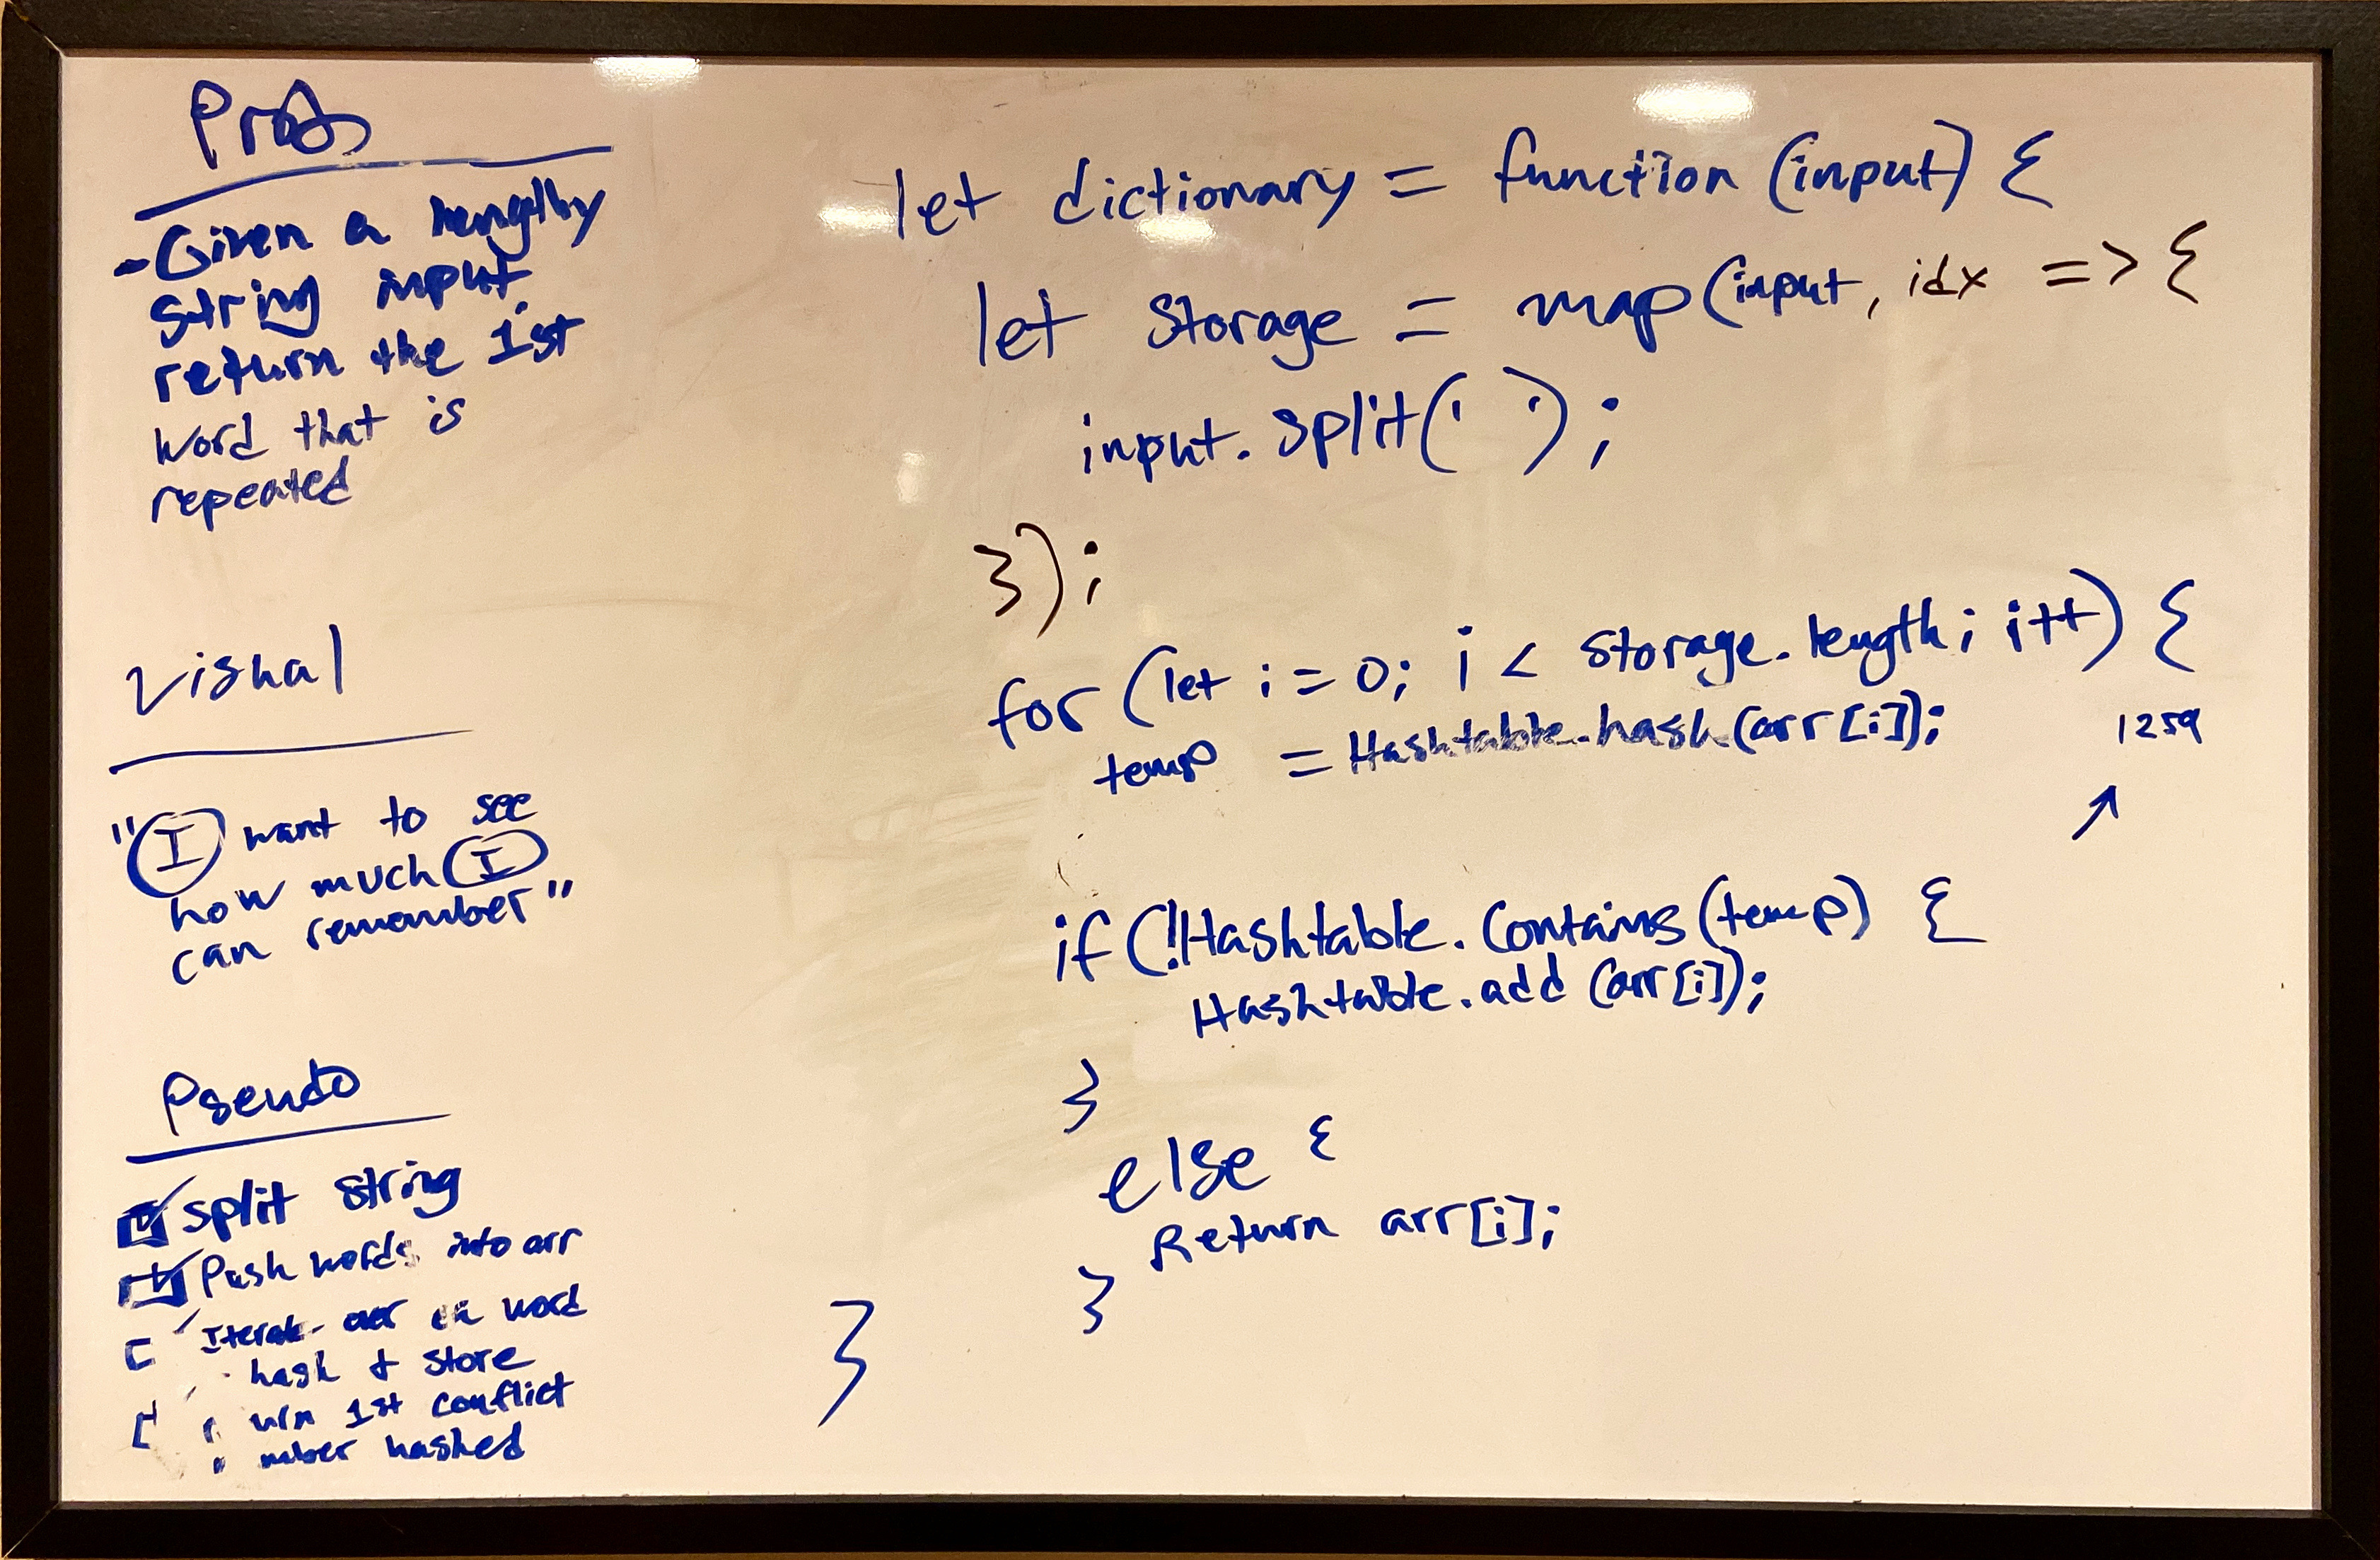 Prob
- Given a lengthy
string input
return the 1st
word that is
repeated
Visual
"I want to see
how much I
can remember"
Pseudo
split string
Push words into arr
Iterate over word
hash & store
1st conflict
hashed
let dictionary = function (input) {
let storage = map(input, idx => {
input.split(' ');
});
for (let i = 0; i < storage.length; i++) {
temp = Hashtable.hash(arr[i]);
1259
if (!Hashtable.contains(temp) {
Hashtable.add (arr[i]);
}
else {
Return arr[i];
}
}